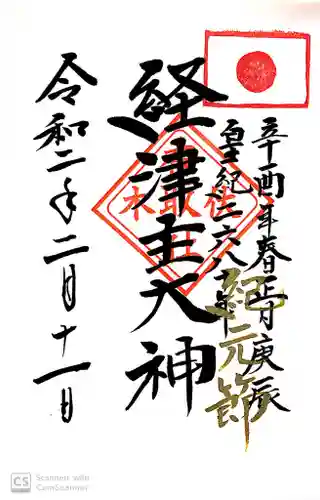 辛酉年春正月庚辰
皇紀二六八〇年
紀元節
経津主大神
令和二年二月十一日
CS
Scanned with
CamScanner